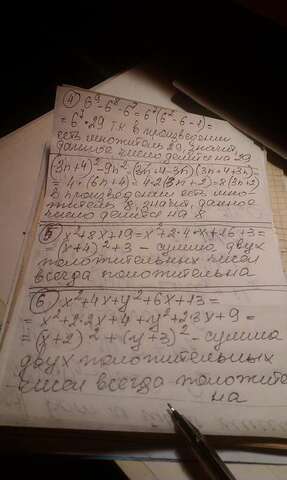 ④ 6⁹-6⁸-6⁷=6⁷(6²-6-1)=
=6⁷·29 т.к в произведении
есть множитель 29, значит,
данное число делится на 29
(3n+4)²-9n²=(3n+4-3n)(3n+4+3n)=
=4·(6n+4)=4·2(3n+2)=8(3n+2)
в произведении есть мно-
житель 8, значит, данное
число делится на 8
⑤ x²+8x+19=x²+2·4·x+16+3=
=(x+4)²+3 - сумма двух
положительных чисел
всегда положительна
⑥ x²+4x+y²+6x+13=
=x²+2·2x+4+y²+2·3x+9=
=(x+2)²+(y+3)² - сумма
двух положительных
чисел всегда положите
на